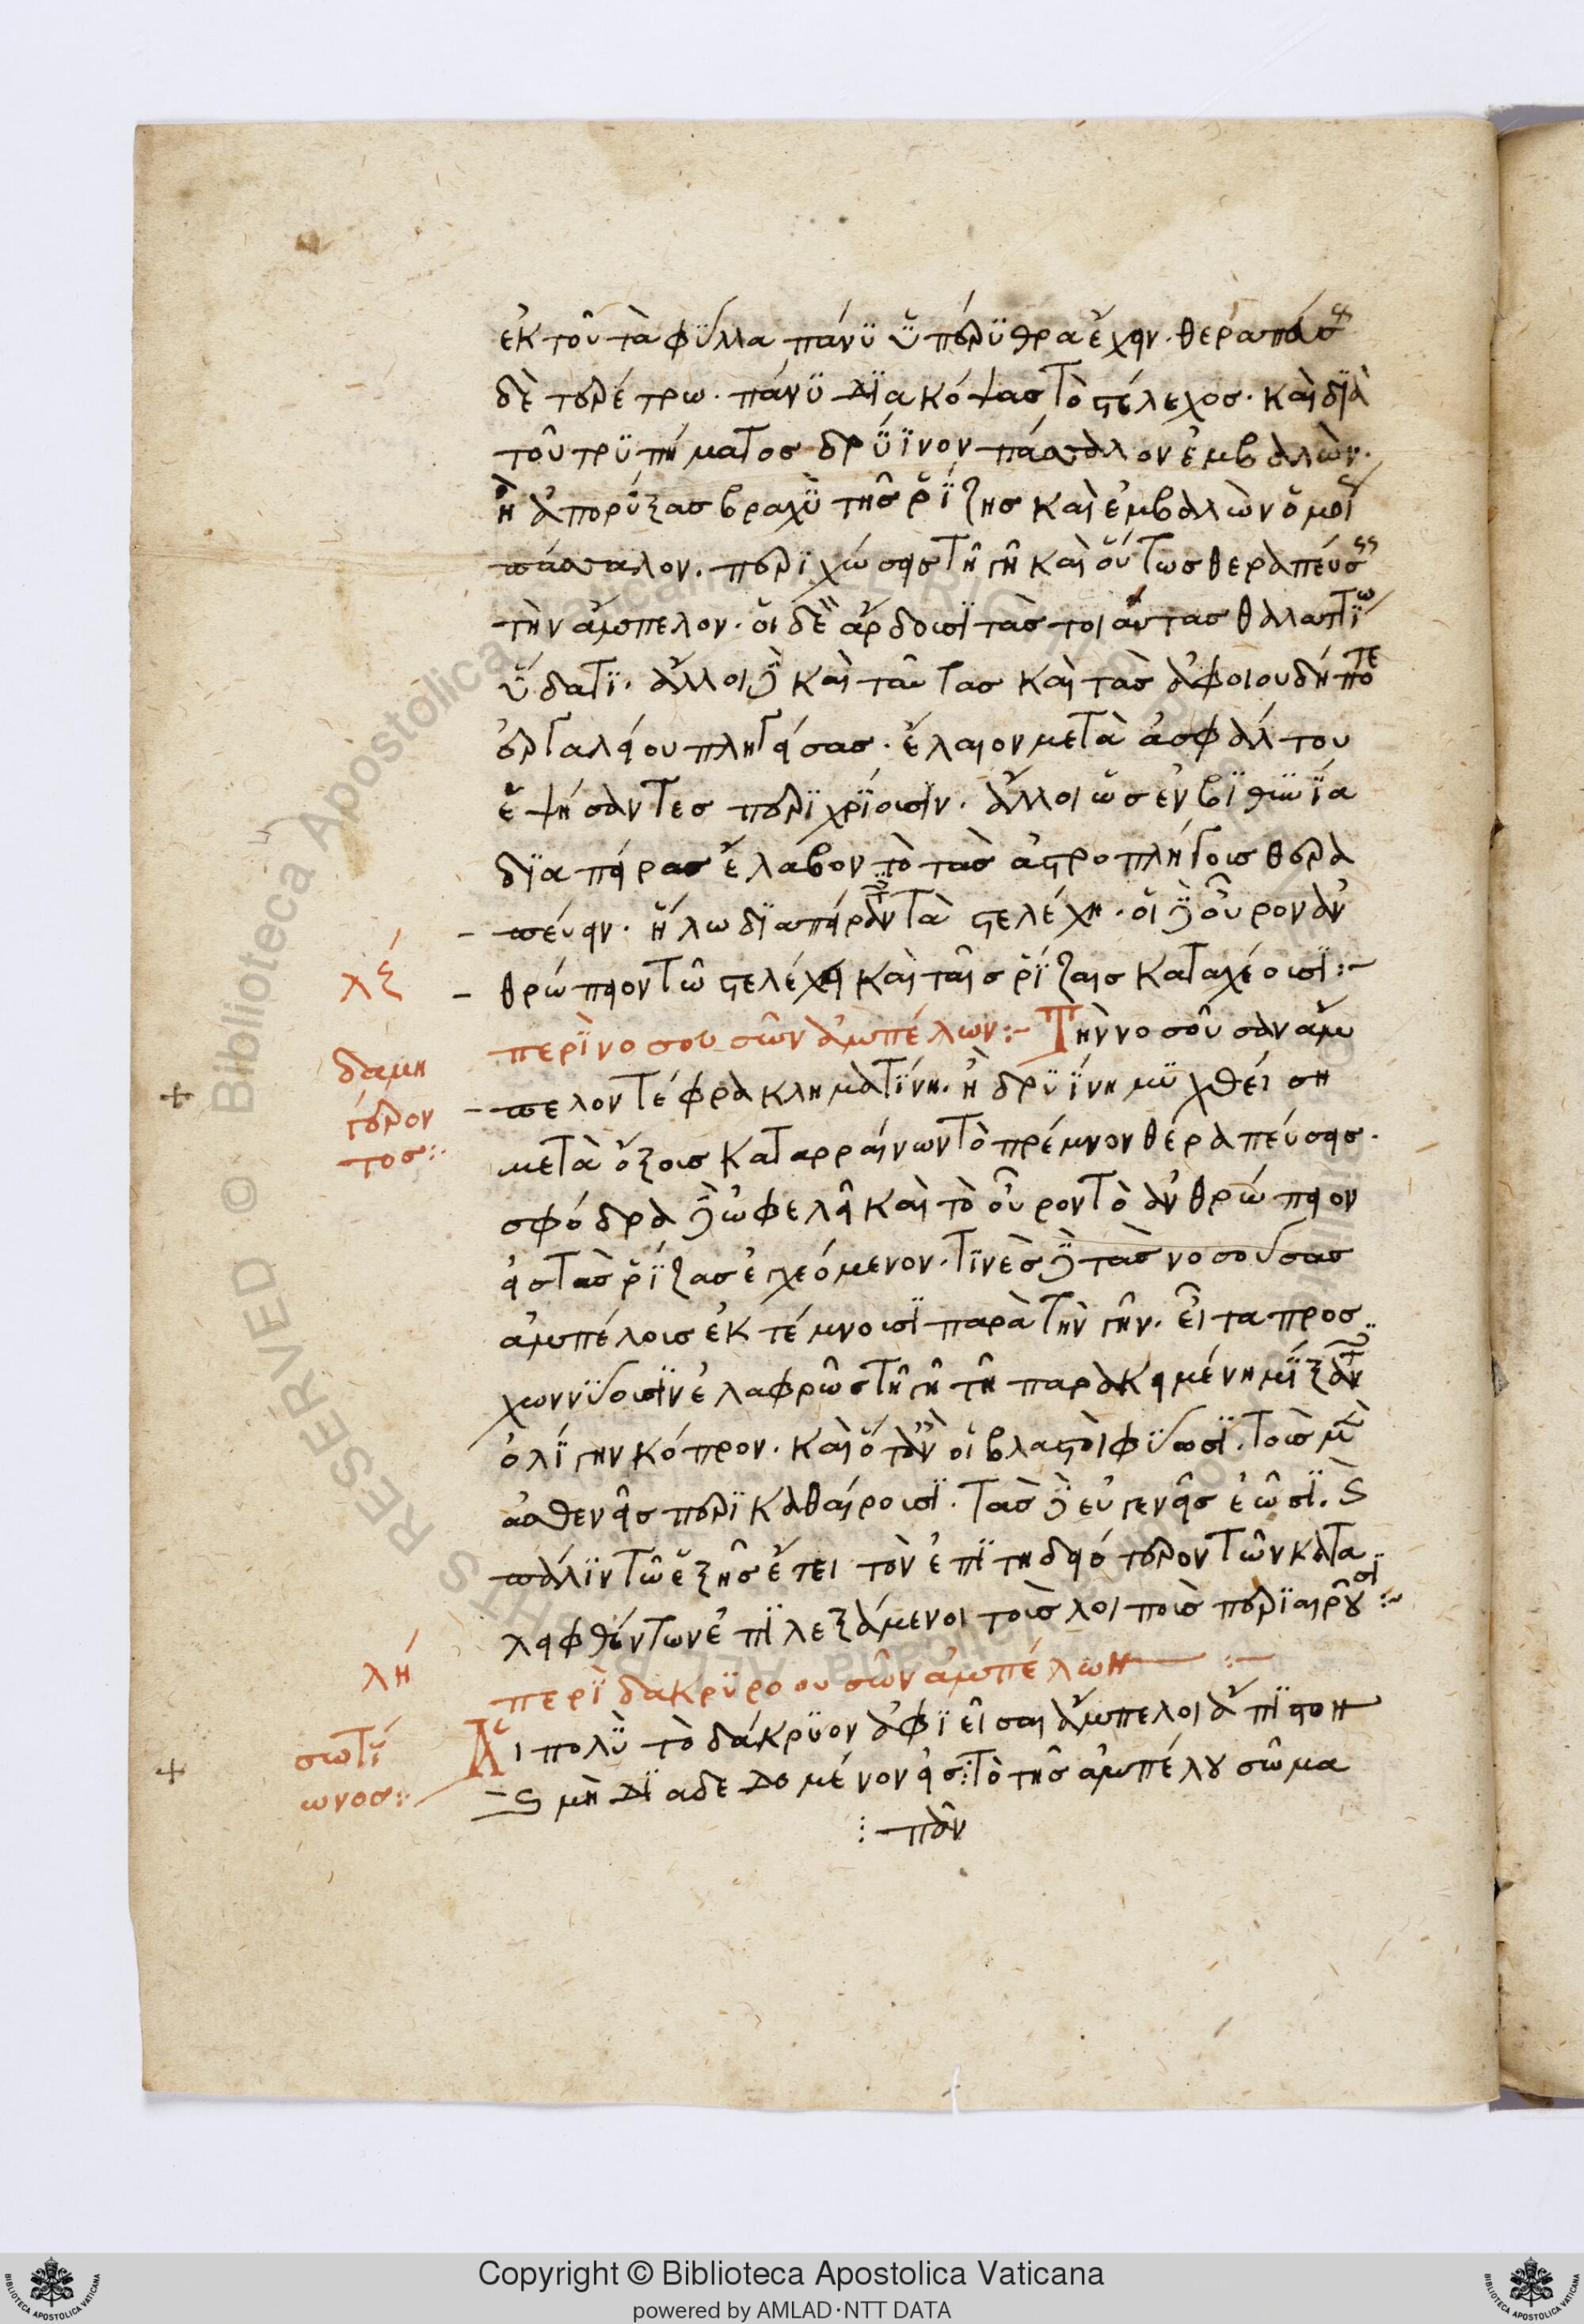 ἐκ τοῦ τὰ φύλλα πάνυ ὑπέρυθρα ἔχειν. θεραπεύσεις
δὲ τερέτρω. πάνυ διακόψας τὸ στέλεχος. καὶ διὰ
τοῦ τρυπήματος δρύϊνον πάσσαλον ἐμβαλών.
ἢ ἀπορύξας βραχὺ τῆς ῥίζης καὶ ἐμβαλὼν ὁμοῖ
πάσσαλον. περιχώσεις τῆ γῆ καὶ οὕτως θεραπεύσεις
τὴν ἄμπελον. οἱ δὲ ἄρδουσι τὰς τοιαύτας θαλαττίω
ὕδατι. ἄλλοι δὲ καὶ ταύτας καὶ τὰς ἀφ οιουδήποτε
ἐργαλείου πληγείσας. ἔλαιον μετὰ ἀσφάλτου
ἑψήσαντες περιχρίουσιν. ἄλλοι ὡς ἐν βιθυνία
διαπείρας ἔλαβον τὸ τὰς ἀστροπλήγους θερα
πεύειν. ἥλω διαπείραντα στελέχη. οἱ δὲ οὖρον ἀν
θρώπειον τῶ στελέχει καὶ ταῖς ῥίζαις καταχέουσι:-
λζ
περὶ νοσουσῶν ἀμπέλων:- Τὴν νοσοῦσαν ἄμ
δαμη
γέρον
τος:.
πελον τέφρα κληματίνη. ἢ δρυΐνη μιχθείση
μετὰ ὄξους καταρραίνων τὸ πρέμνον θεραπεύσεις.
σφόδρα δὲ ὠφελεῖ καὶ τὸ οὖρον τὸ ἀνθρώπειον
εἰς τὰς ῥίζας ἐγχεόμενον. τινὲς δὲ τὰς νοσούσας
ἀμπέλους ἐκτέμνουσι παρὰ τὴν γῆν. εἶτα προσ
χωννύουσιν ἐλαφρῶς τῆ γῆ τῆ παρακειμένη μίξαντες
ὀλίγην κόπρον. καὶ ὅταν οἱ βλαστοὶ φύωσι. τοὺς μὲν
ἀσθενεῖς περικαθαίρουσι. τὰς δὲ εὐγενεῖς ἐῶσι. καὶ
πάλιν τῶ ἑξῆς ἔτει τὸν ἐπιτηδειότερον τῶν κατα
λειφθέντων ἐπιλεξάμενοι τοὺς λοιποὺς περιαιροῦσι:-
λη
περὶ δακρυροουσῶν ἀμπέλων:-
σωτί
ωνος:
Αἱ πολὺ τὸ δάκρυον ἀφιεῖσαι ἄμπελοι ἄπιστον
καὶ μὴ διαδεδομένον εἰς τὸ τῆς ἀμπέλου σῶμα
πᾶν
Copyright © Biblioteca Apostolica Vaticana
powered by AMLAD·NTT DATA